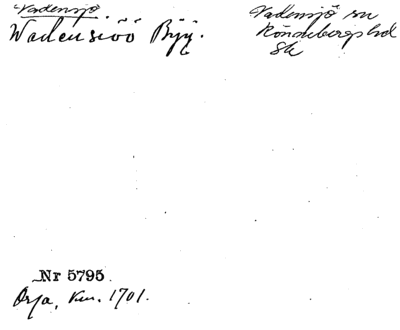 Vadensjö
Wadensiöö Byÿ.
Vadensjö sn
Rönnebergs hd
Sk
Nr 5795
Örja, Km. 1701.